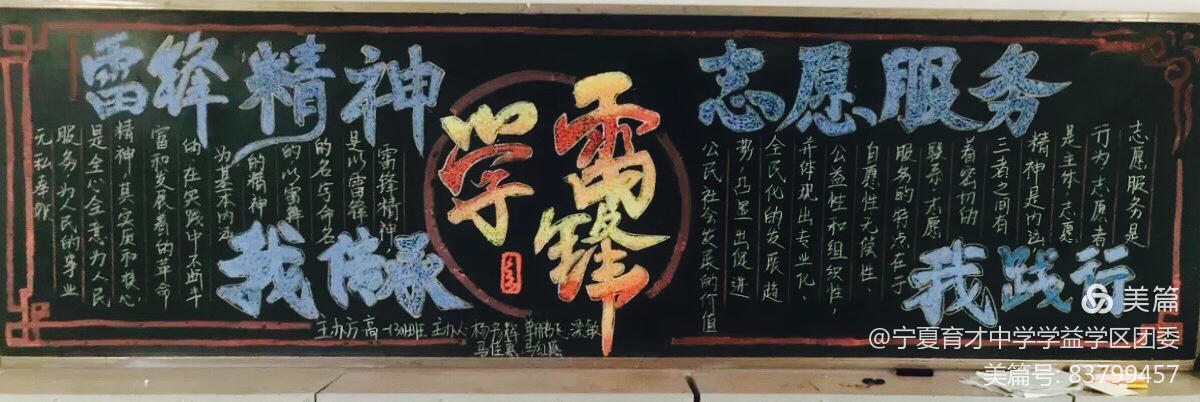 雷锋精神
我传承
学雷锋
志愿服务
我践行
雷锋精神，
是以雷锋
的名字命名
的、以雷锋
的精神
为基本内涵
的、在实践中不断丰
富和发展着的革命
精神，其实质和核心
是全心全意为人民
服务，为人民的事业
无私奉献
志愿服务是
行为，志愿者
是主体，志愿
精神是内涵
三者之间有
着密切的
联系，志愿
服务的特点在于
自愿性、无偿性、
公益性和组织性，
并体现出专业化、
全民化的发展趋
势，凸显出促进
公民社会发展的价值
主办方：高一(30)班 主办人：梁敏
美篇
@宁夏育才中学学益学区团委
美篇号: 83799457